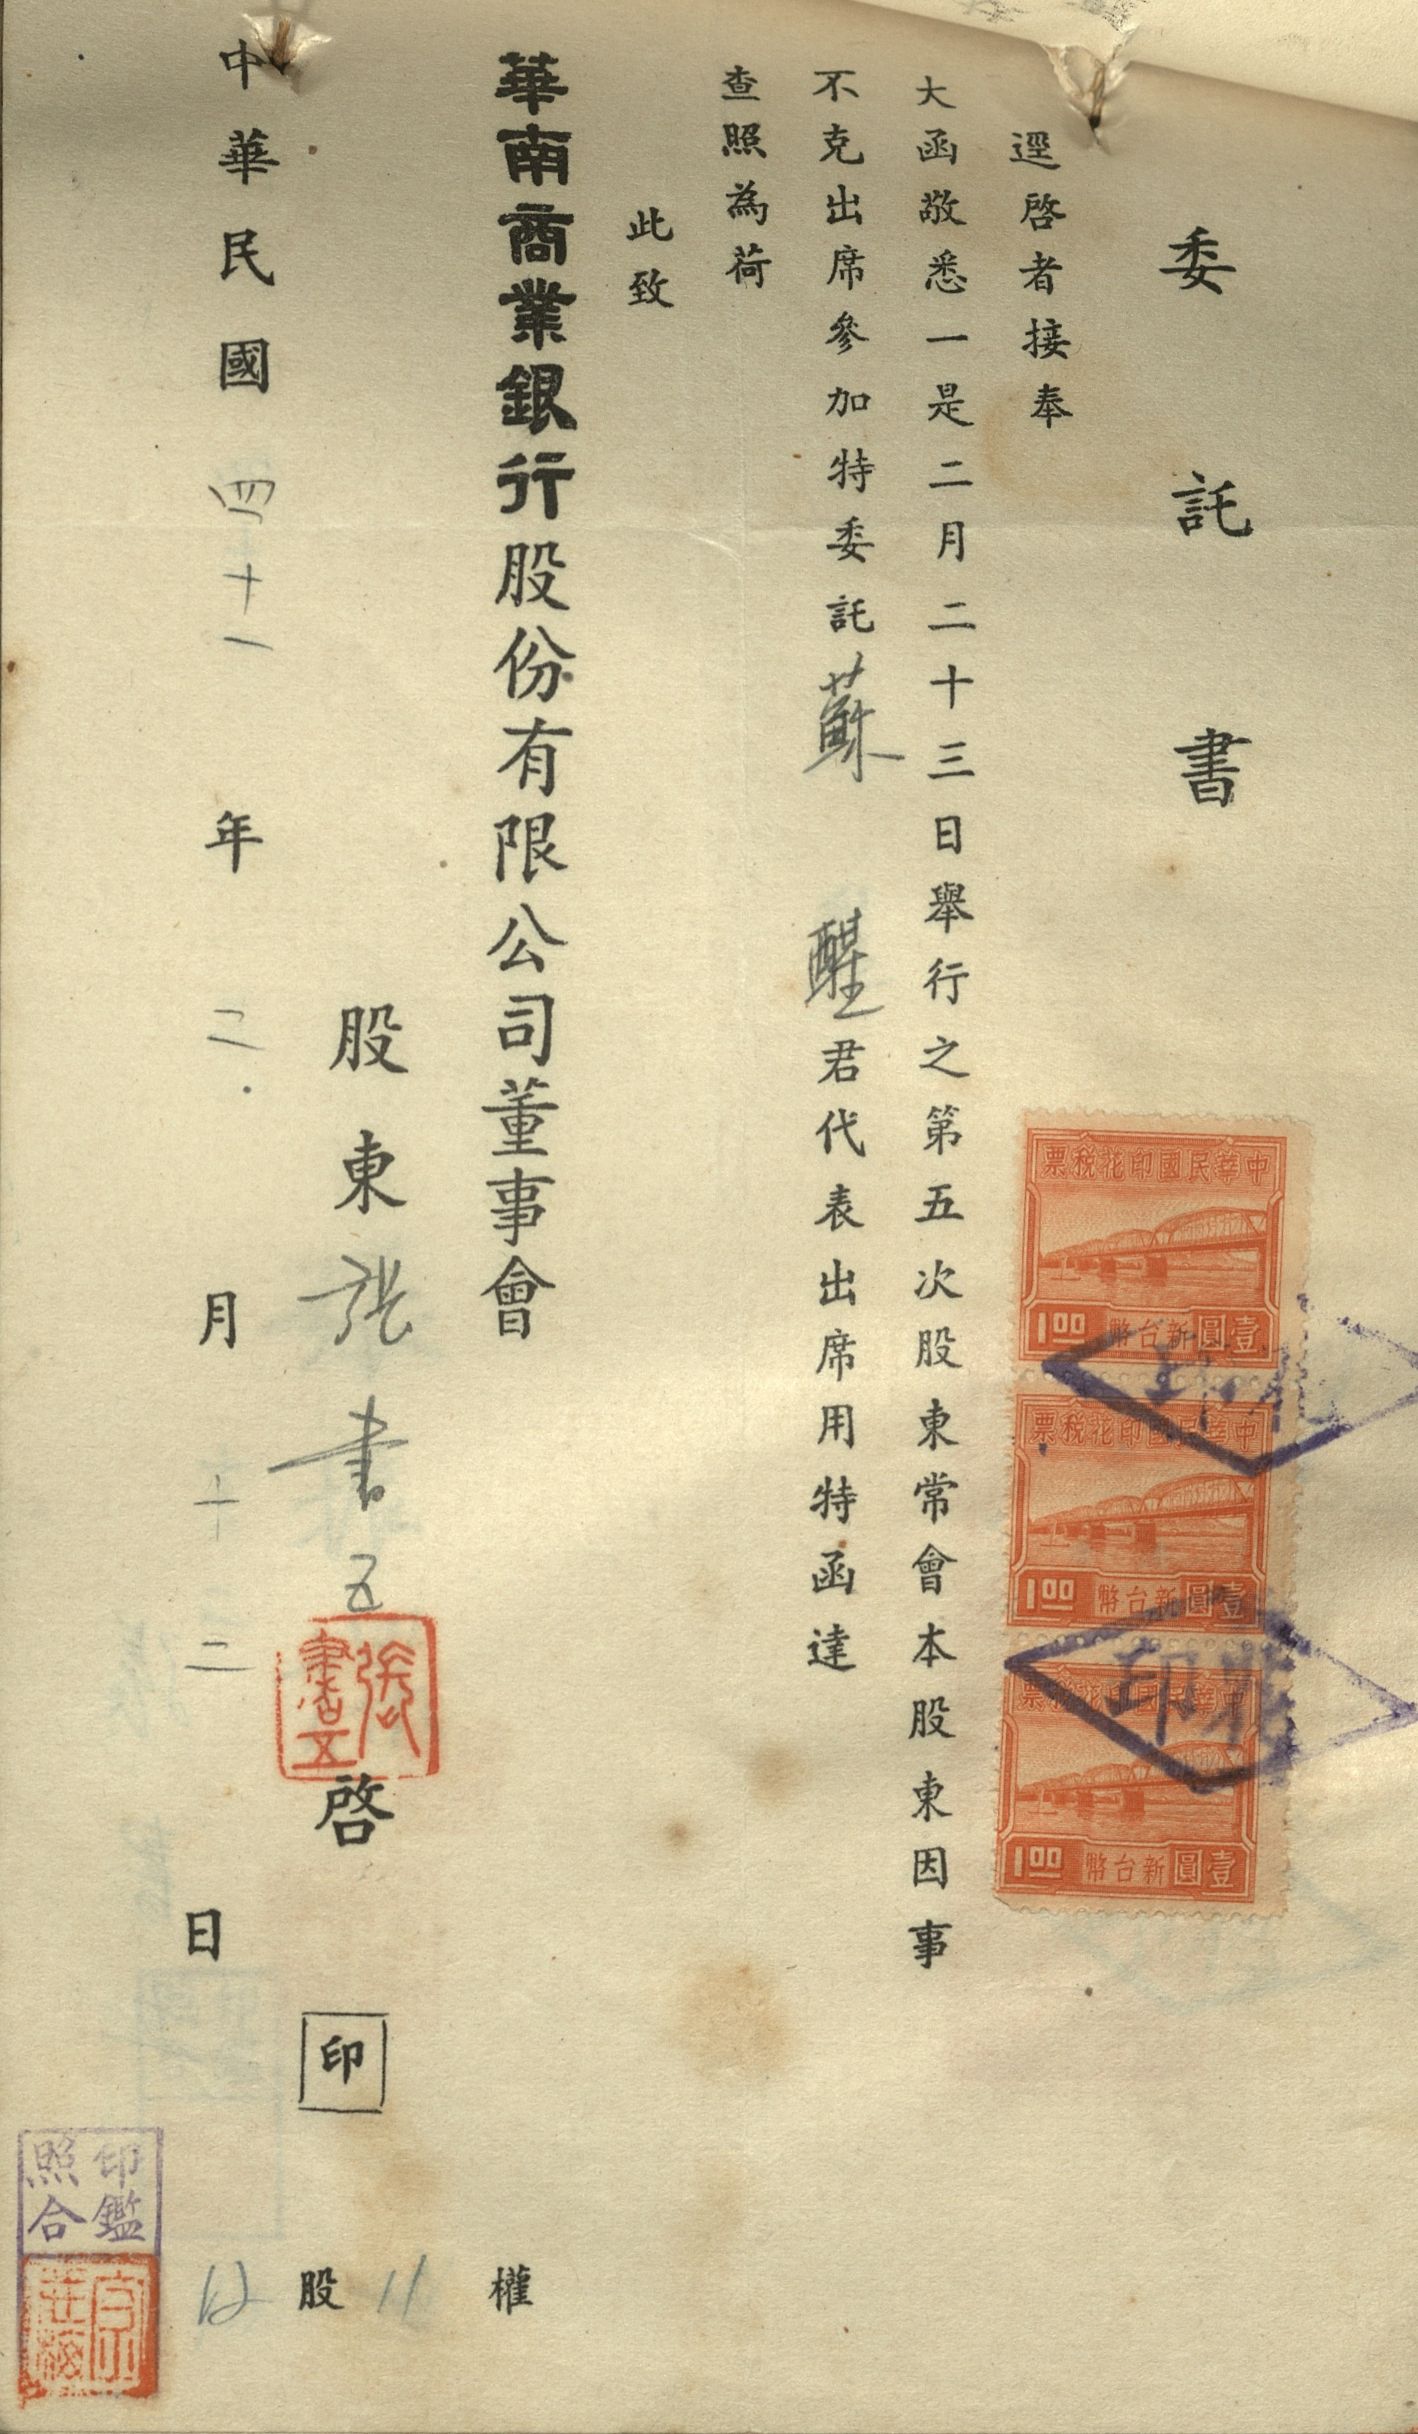 委託書
逕啓者接奉
大函敬悉一是二月二十三日舉行之第五次股東常會本股東因事
不克出席參加特委託蘇醒君代表出席用特函達
查照為荷
此致
華南商業銀行股份有限公司董事會
股東張書五啓
印
中華民國四十一年二月十二日
12股11權
中華民國印花稅票
1.00新台幣壹圓
中華民國印花稅票
1.00新台幣壹圓
中華民國印花稅票
1.00新台幣壹圓
印花
印花
張書五
印鑑照合